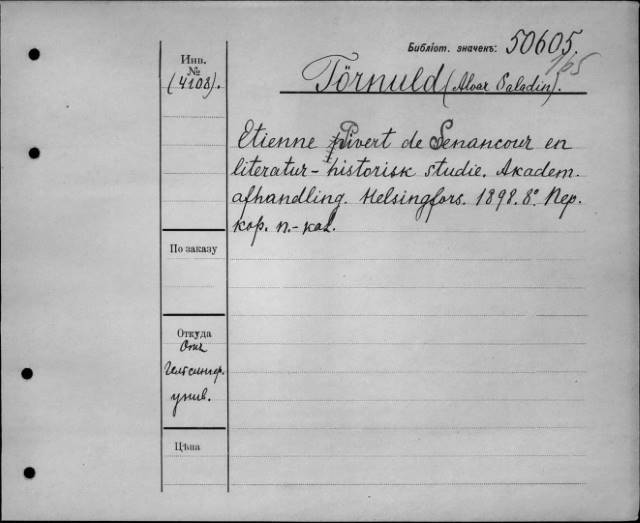 Библіот. значенъ: 50605.
1/65
Инв.
№
(4108).
Törnuld (Alvar Paladin).
Etienne Pivert de Senancour en
literatur-historisk studie. Akadem.
afhandling. Helsingfors. 1898. 8°. Пер.
кор. п.-кал.
По заказу
Откуда
Отъ
Гельсингф.
унив.
Цѣна